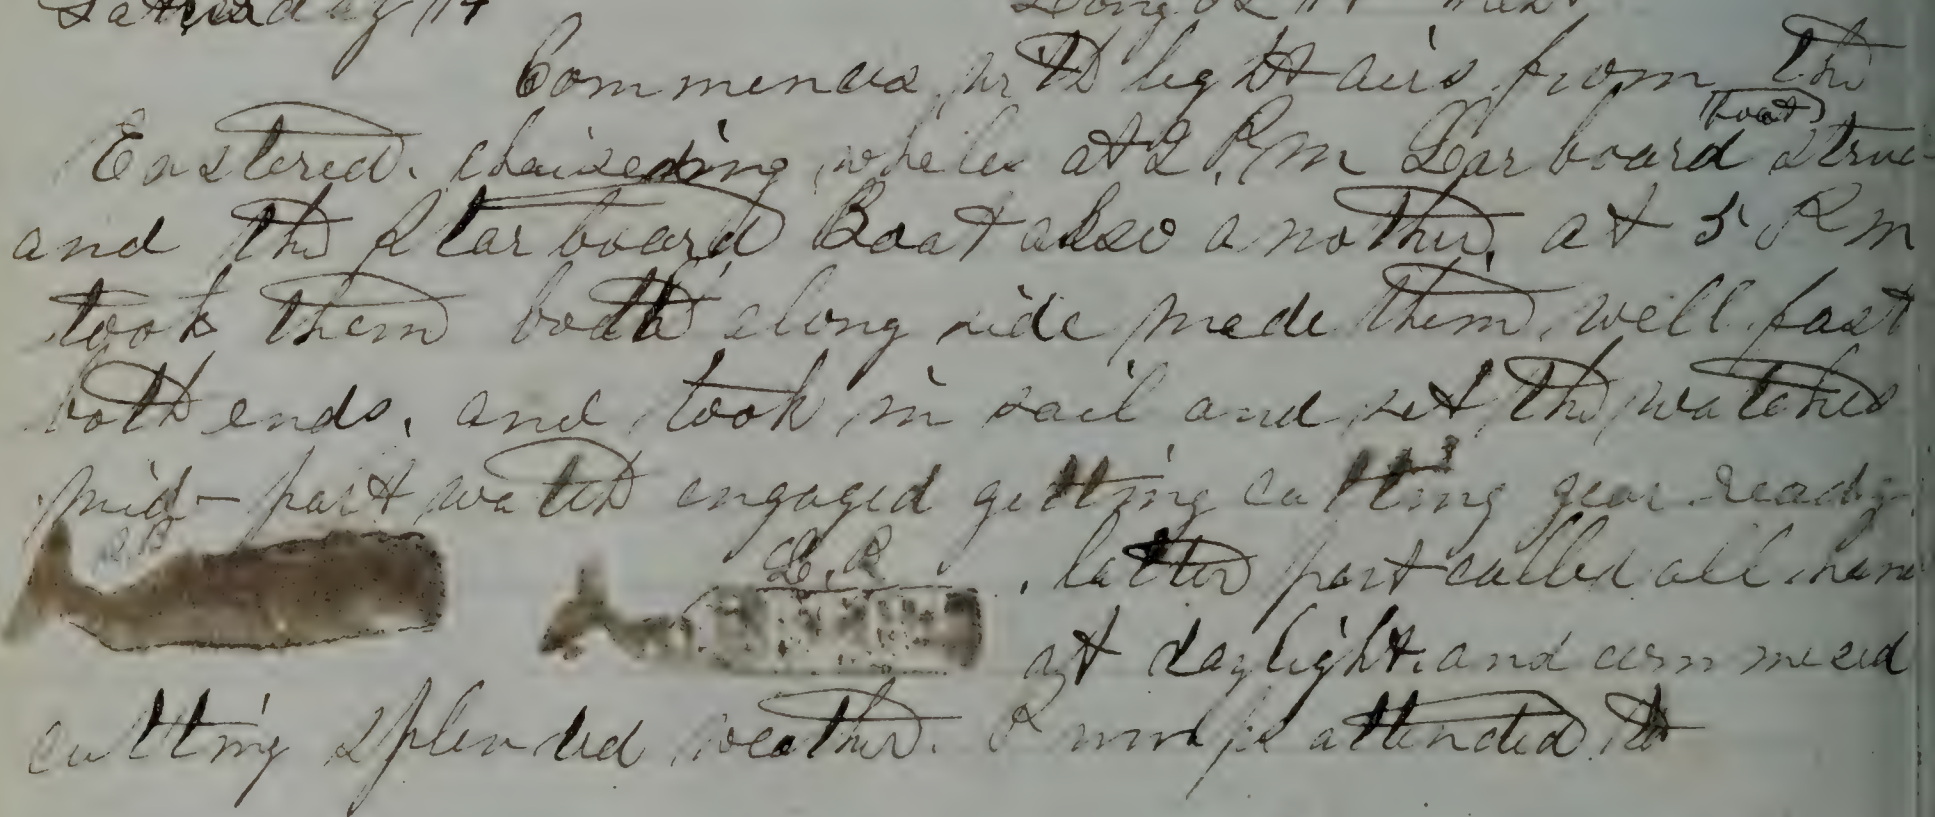 Saturday 14
Commences with light airs from the
Eastered. chaiseing whales at 2 P.m Larboard boat struc
and the Starboard Boat also another, at 5 P m
took them both along side made them, well fast
both ends, and took in sail and set the watches
mid-part watch engaged getting cutting gear ready
S.B L.B. latter part called all han
at daylight. and commeced
cutting splended weather. Pumps attended to